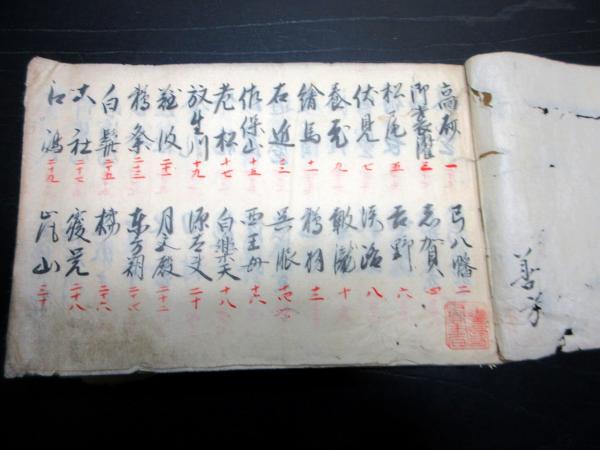 高砂 一 弓八幡 二
御裳濯 三 志賀 四
松尾 五 吉野 六
伏見 七 淡路 八
養老 九 鼓瀧 十
繪馬 十一 鵜羽 十二
右近 十三 呉服 十四
佐保山 十五 西王母 十六
老松 十七 白樂天 十八
放生川 十九 源太夫 二十
難波 二十一 月宮殿 二十二
鵜祭 二十三 東方朔 二十四
白髭 二十五 二十六
大社 二十七 寝覚 二十八
江嶋 二十九 嵐山 三十